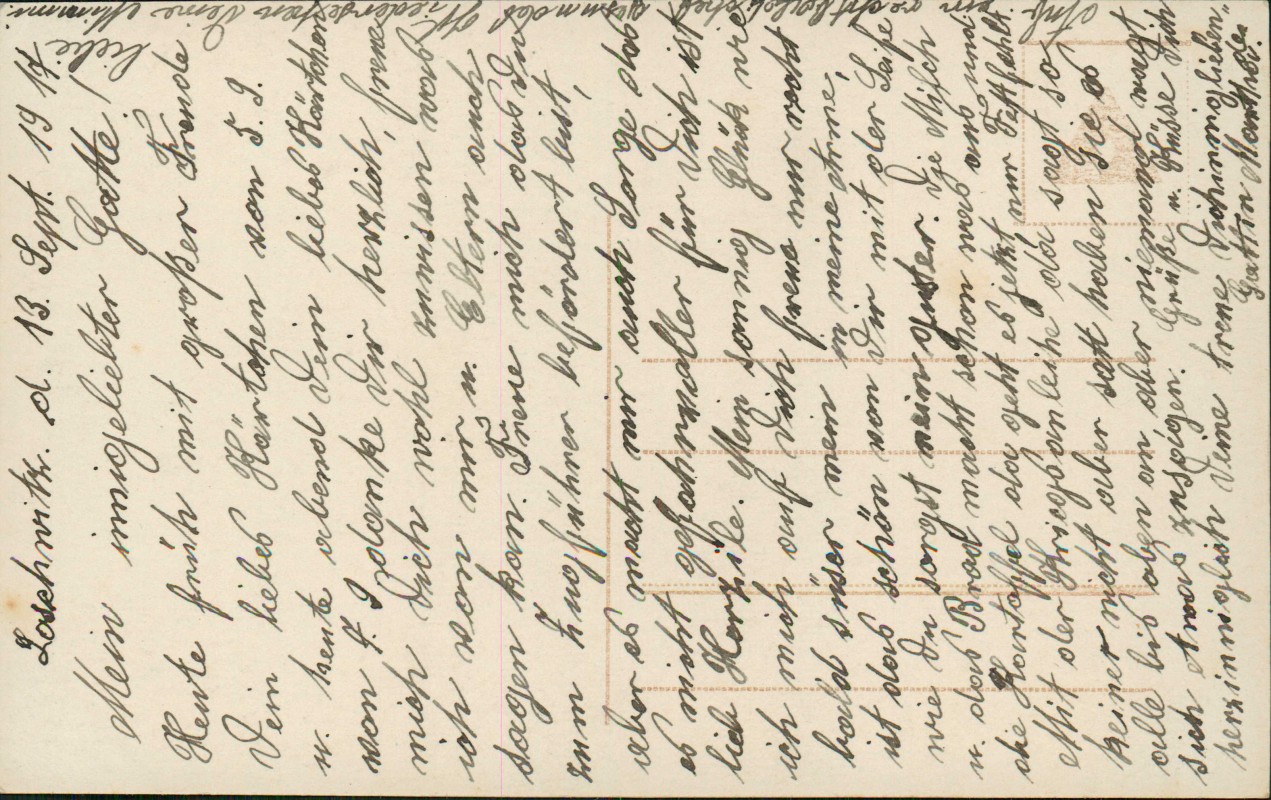 Loschwitz. d. 13 Sept. 19 17.
Mein innigeliebter Gatte!
Heute früh mit großer Freude
Dein liebes Kärtchen von 5. 9.
u. heute abend Dein liebes Kärtchen
von 7. 9 danke Dir herzlich, freue
mich Dich wohl zu wissen was
ich von mir u. Eltern auch
sagen kan. Freue mich das Du
zum Zugführer befördert bist,
aber es macht mir auch Sorge das
es nicht gefahrvoller für Dich ist
lieb Herzile. Mein sonnig Glück wie
ich mich auf Dich freue nur recht
bald süser mein in meine Arme,
ist das schön von Dir mit der Seife
wie Du sorgst mein guster. Die Milch
u. das Brod macht schon was aus und
die Kartoffel da geht es jetzt nur Fett fehlt.
Mit der Kriegsanleihe das sagt so
keiner nicht aber satt haben Sie es
alle bis oben an aber niemand wagt
sich etwas zu sagen. Grüße u. Küsse Dich
herzinniglich Deine treue Dich innig lieben-
Gattin Martha.
Auf ein recht baldiches gesundes Wiedersehen Deine Mimmi
Liebe